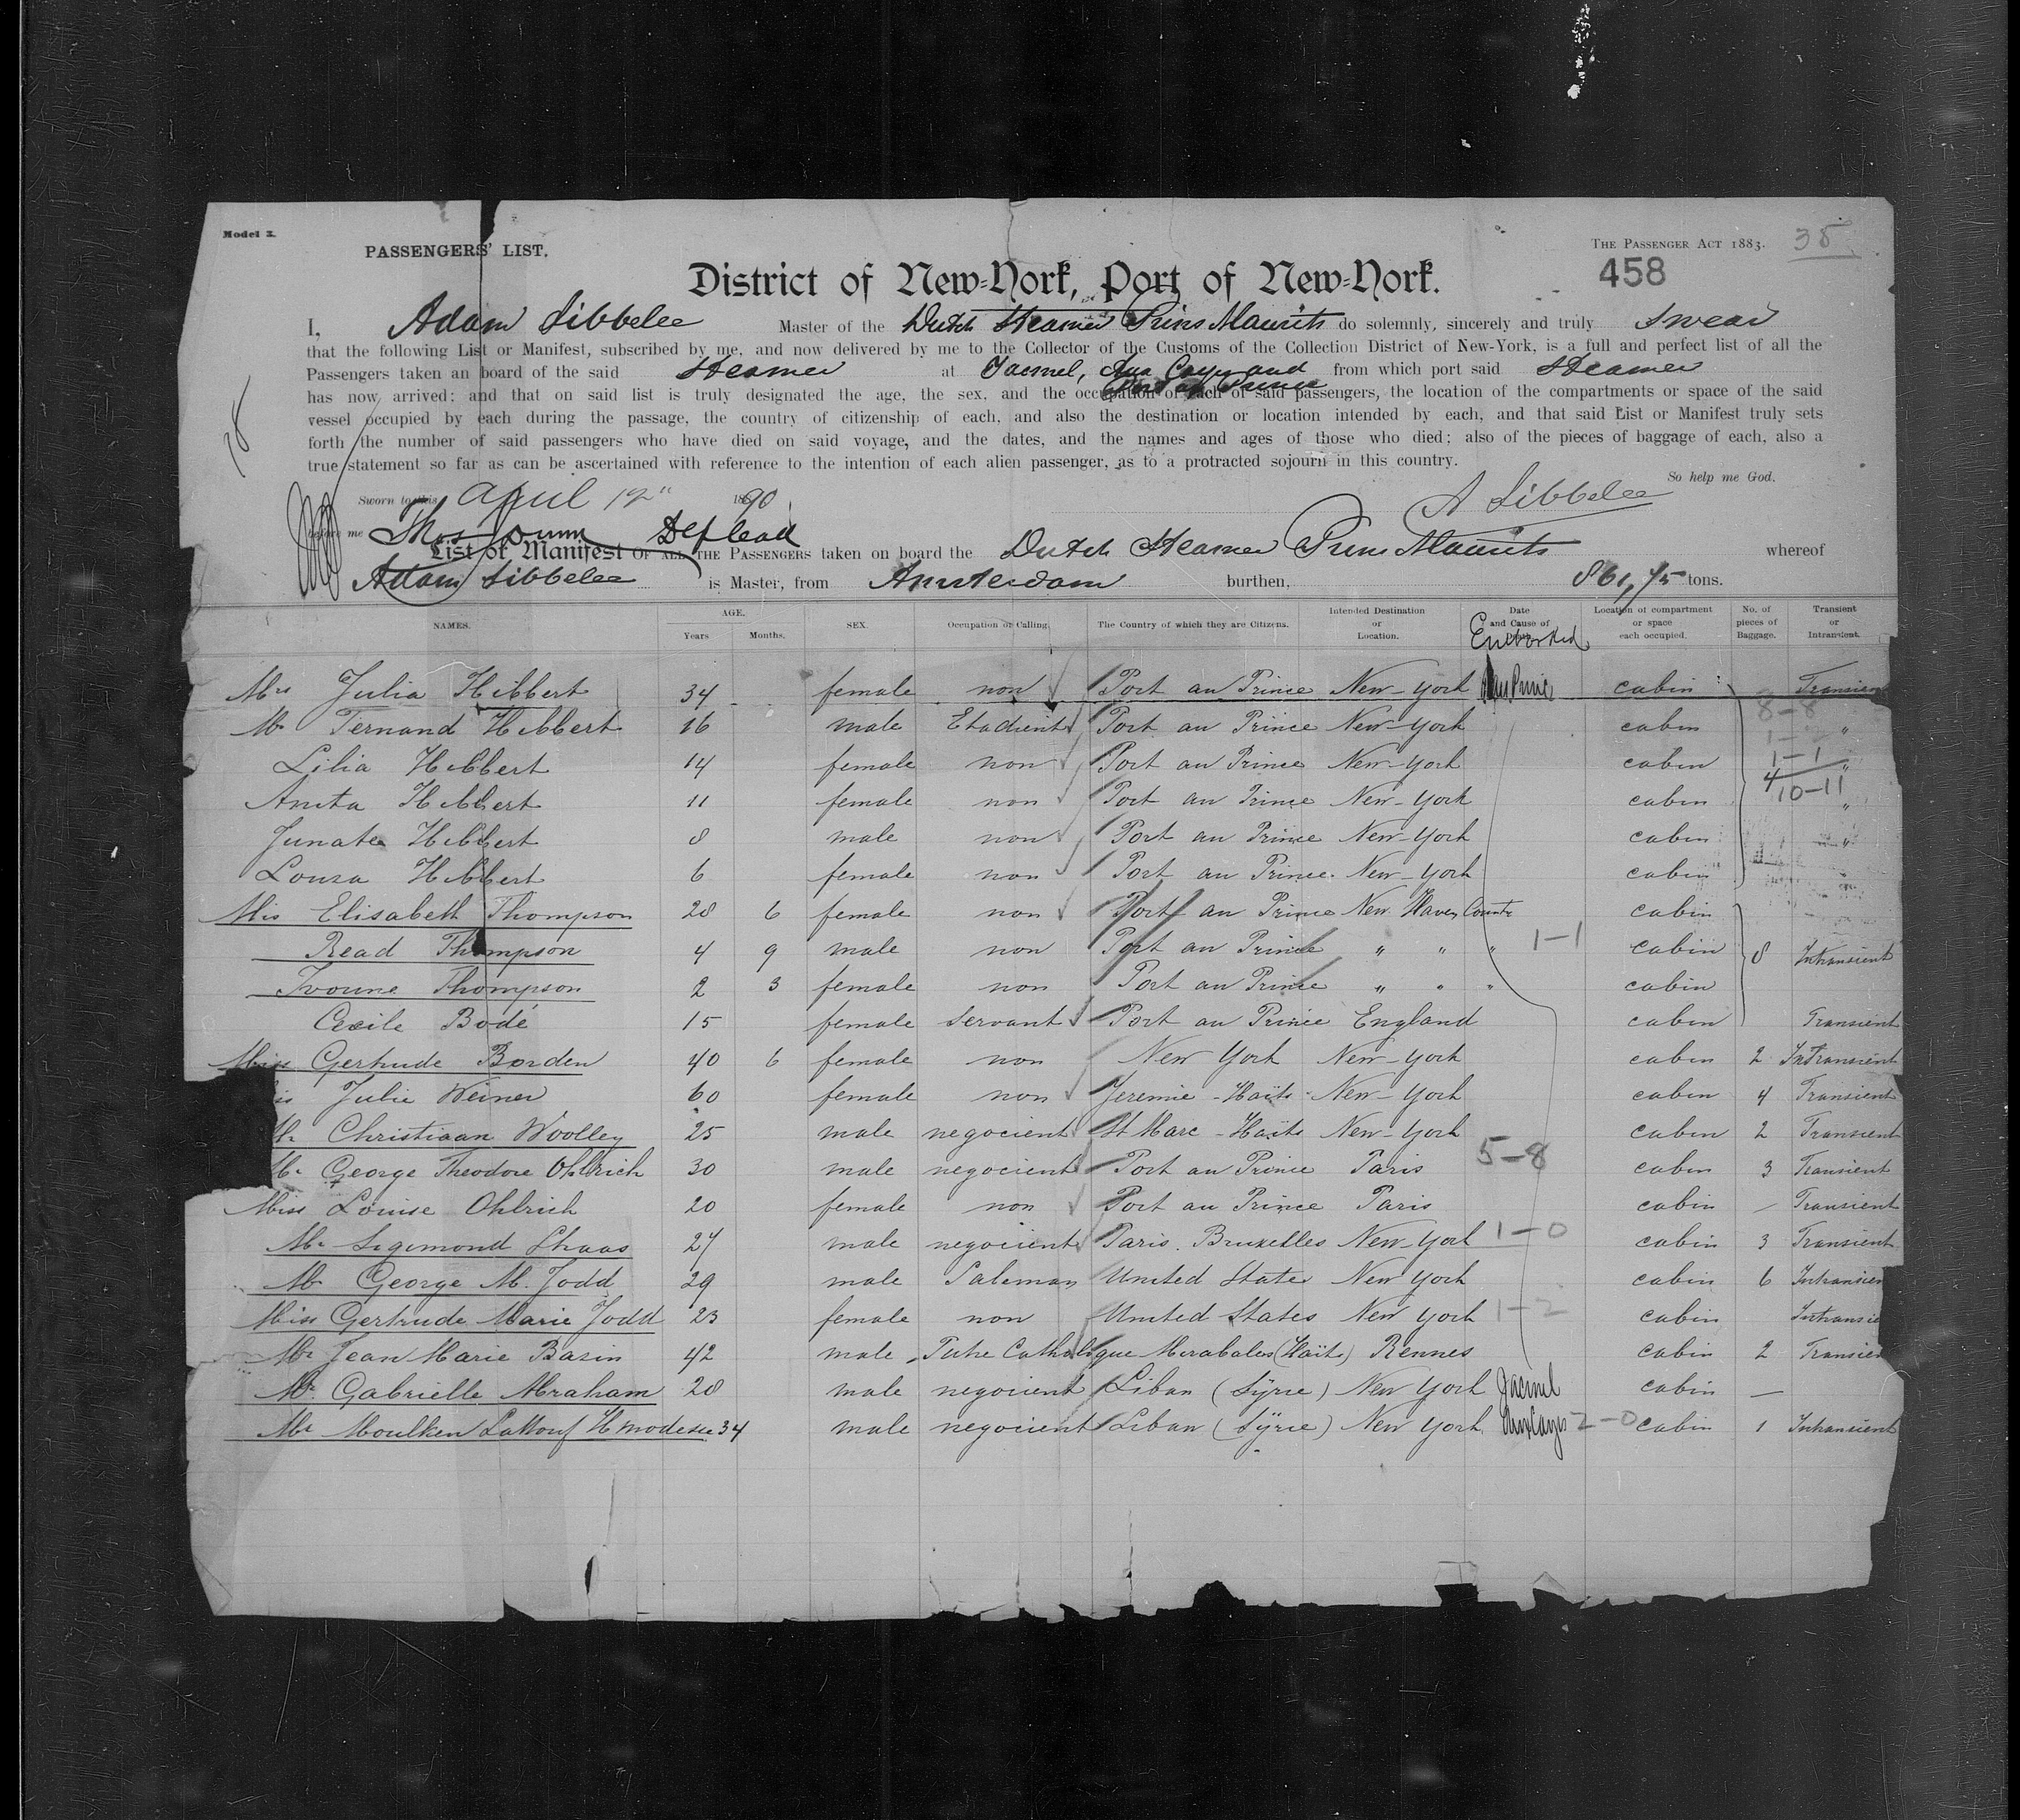 Model 3.
PASSENGERS' LIST.
THE PASSENGER ACT 1883.
38
458
District of New-York, Port of New-York.
I, Adam Sibbelee Master of the Dutch Steamer Prins Maurits do solemnly, sincerely and truly swear
that the following List or Manifest, subscribed by me, and now delivered by me to the Collector of the Customs of the Collection District of New-York, is a full and perfect list of all the
Passengers taken an board of the said Steamer at Jacmel, Aux Cayes and Port au Prince from which port said Steamer
has now arrived; and that on said list is truly designated the age, the sex, and the occupation of each of said passengers, the location of the compartments or space of the said
vessel occupied by each during the passage, the country of citizenship of each, and also the destination or location intended by each, and that said List or Manifest truly sets
forth the number of said passengers who have died on said voyage, and the dates, and the names and ages of those who died; also of the pieces of baggage of each, also a
true statement so far as can be ascertained with reference to the intention of each alien passenger, as to a protracted sojourn in this country.
So help me God.
18
Sworn to this April 12" 1890
A Sibbelee
before me Thos Dunn
List or Manifest OF ALL THE PASSENGERS taken on board the Dutch Steamer Prins Maurits whereof
Adam Sibbelee is Master, from Amsterdam burthen, 861,75 tons.
NAMES. AGE. Years Months. SEX. Occupation or Calling. The Country of which they are Citizens. Intended Destination or Location. Date and Cause of Embarked Location of compartment or space each occupied. No. of pieces of Baggage. Transient or Intransient.
Mrs Julia Hibbert 34 female non Port au Prince New-York cabin Transien
Mr Fernand Hibbert 16 male Etudient Port au Prince New-York cabin 8-8 "
Lilia Hibbert 14 female non Port au Prince New-York cabin 1-1 "
Anita Hibbert 11 female non Port au Prince New-York cabin 4 10-11 "
Hibbert 8 male non Port au Prince New-York cabin "
Louza Hibbert 6 female non Port au Prince New-York cabin
Mis Elisabeth Thompson 28 6 female non Port au Prince New Haven cabin
Read Thompson 4 9 male non Port au Prince " " " 1-1 cabin 8 Intransient
Yvonne Thompson 2 3 female non Port au Prince " " " cabin
Cecile Bodé 15 female servant Port au Prince England cabin Transient
Miss Gertrude Borden 40 6 female non New York New-York cabin 2 InTransient
is Julie Weiner 60 female non Jeremie-Haïti New-York cabin 4 Transient
Mr Christiaan Woolley 25 male negocient St Marc-Haïti New-York cabin 2 Transient
Mr George Theodore Ohlrich 30 male negocient Port au Prince Paris 5-8 cabin 3 Transient
Miss Louise Ohlrich 20 female non Port au Prince Paris cabin - Transient
Mr Sigemond Shaas 27 male negocient Paris. Bruxelles New-York 1-0 cabin 3 Transient
Mr George M. Todd 29 male Saleman United States New York cabin 6 Intransien
Miss Gertrude Marie Todd 23 female non United States New York 1-2 cabin Intransie
Mr Jean Marie Basin 42 male Catholique Mirabales (Haïti) Rennes cabin 2 Transien
Mr. Gabrielle Abraham 28 male negocient Liban (Syrie) New York Jacmel cabin -
Mr Moulken 34 male negocient Liban (Syrie) New York Aux Cayes 2-0 cabin 1 Intransient